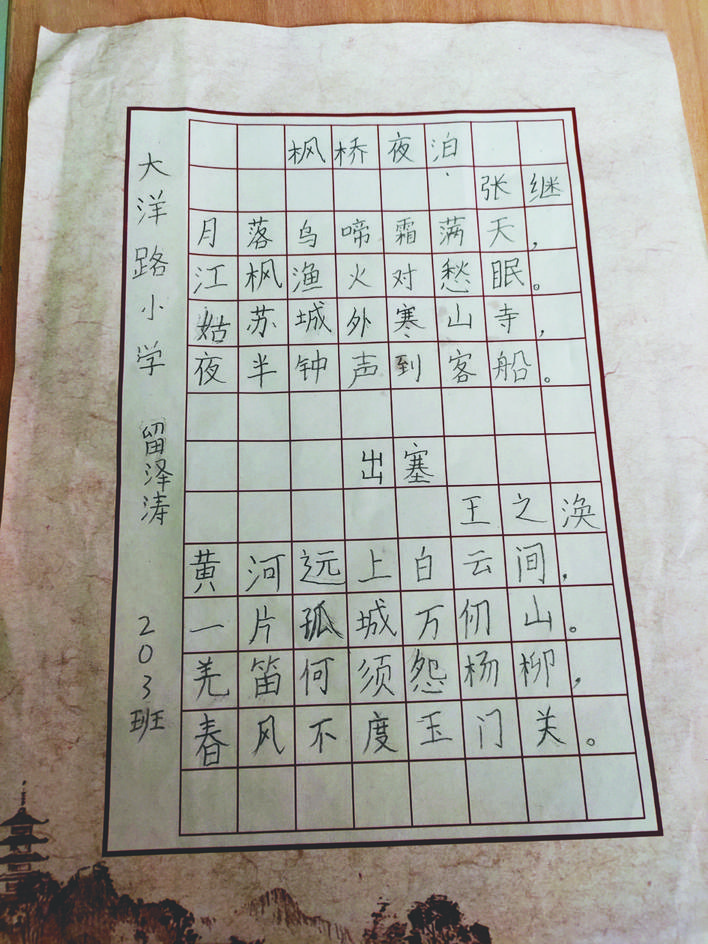 枫桥夜泊
张继
月落乌啼霜满天，
江枫渔火对愁眠。
姑苏城外寒山寺，
夜半钟声到客船。
出塞
王之涣
黄河远上白云间，
一片孤城万仞山。
羌笛何须怨杨柳，
春风不度玉门关。
大洋路小学 留泽涛 203班